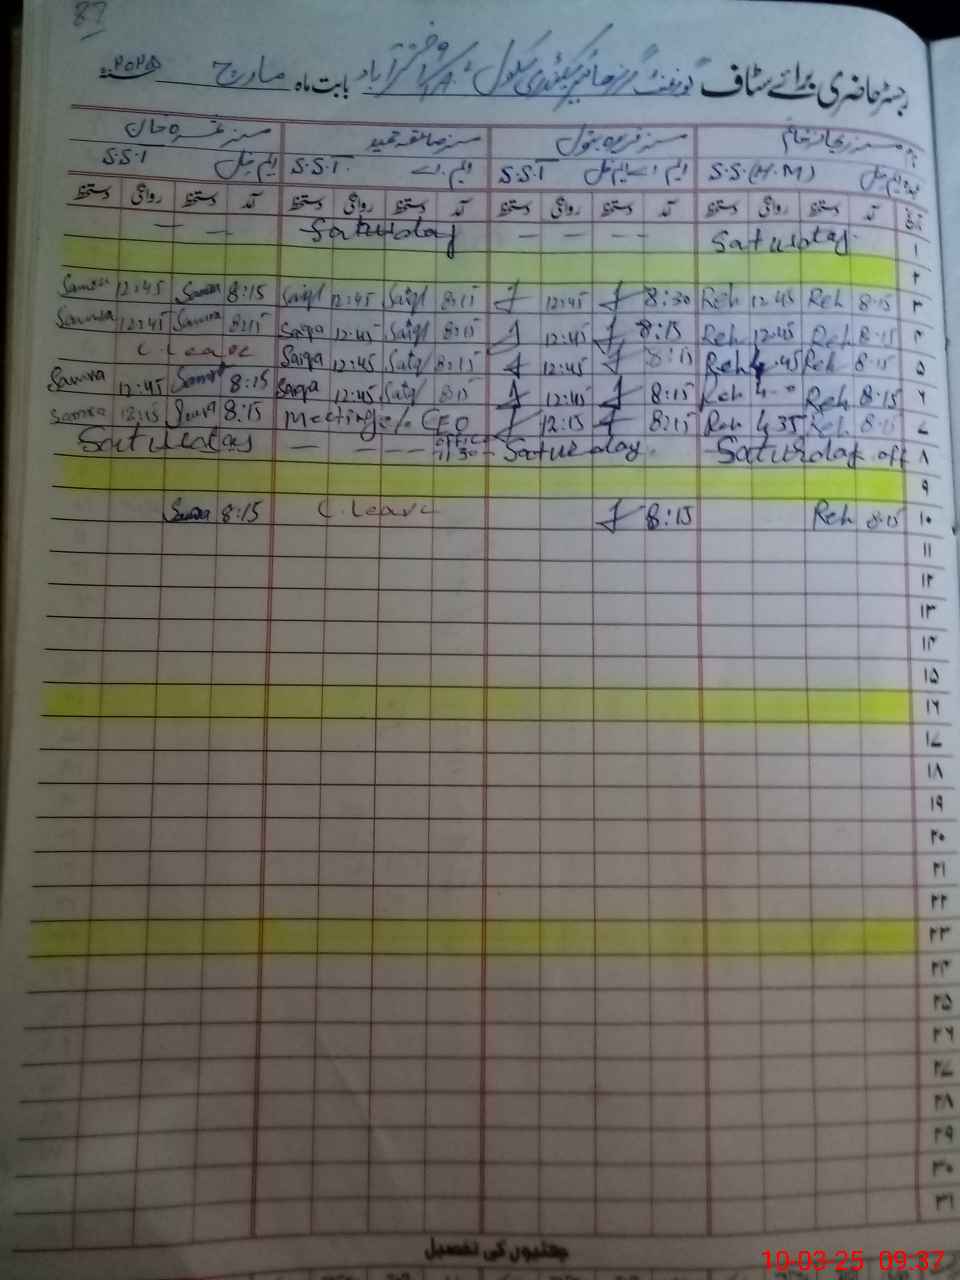 87
رجسٹر حاضری برائے سٹاف گورنمنٹ گرلز ہائیر سیکنڈری سکول بابت ماہ مارچ ۲۰۲۵
مسز ریحانہ خانم مسز فریدہ بتول مسز صائقہ حمید مسز خان
S.S.(H.M) ایم اے S.S.T ایم اے S.S.T. S.S.T
تاریخ آمد دستخط روانگی دستخط آمد دستخط روانگی دستخط آمد دستخط روانگی دستخط آمد دستخط روانگی دستخط
۱ Saturday. — — — — Saturday — —
۲
۳ 8:15 Reh 12:45 Reh 8:30 12:45 8:15 Saiqa 12:45 Saiqa 8:15 Samra 12:45 Samra
۴ 8:15 Reh 12:45 Reh 8:15 12:45 8:15 Saiqa 12:45 Saiqa 8:15 Samra 12:45 Samra
۵ 8:15 Reh 45 Reh 8:15 12:45 8:15 Saiqa 12:45 Saiqa C.Leave
۶ 8:15 Reh Reh 8:15 12:45 8:15 Saiqa 12:45 Saiqa 8:15 Samra 12:45 Samra
۷ 8:15 Reh 4:35 Reh 8:15 12:15 Meeting CEO office 11:30 8:15 Samra 12:15 Samra
۸ Saturday off Saturday. — — — — Saturday
۹
۱۰ 8:15 Reh 8:15 C.Leave 8:15 Samra
۱۱
۱۲
۱۳
۱۴
۱۵
۱۶
۱۷
۱۸
۱۹
۲۰
۲۱
۲۲
۲۳
۲۴
۲۵
۲۶
۲۷
۲۸
۲۹
۳۰
۳۱
چھٹیوں کی تفصیل
10-03-25 09:37